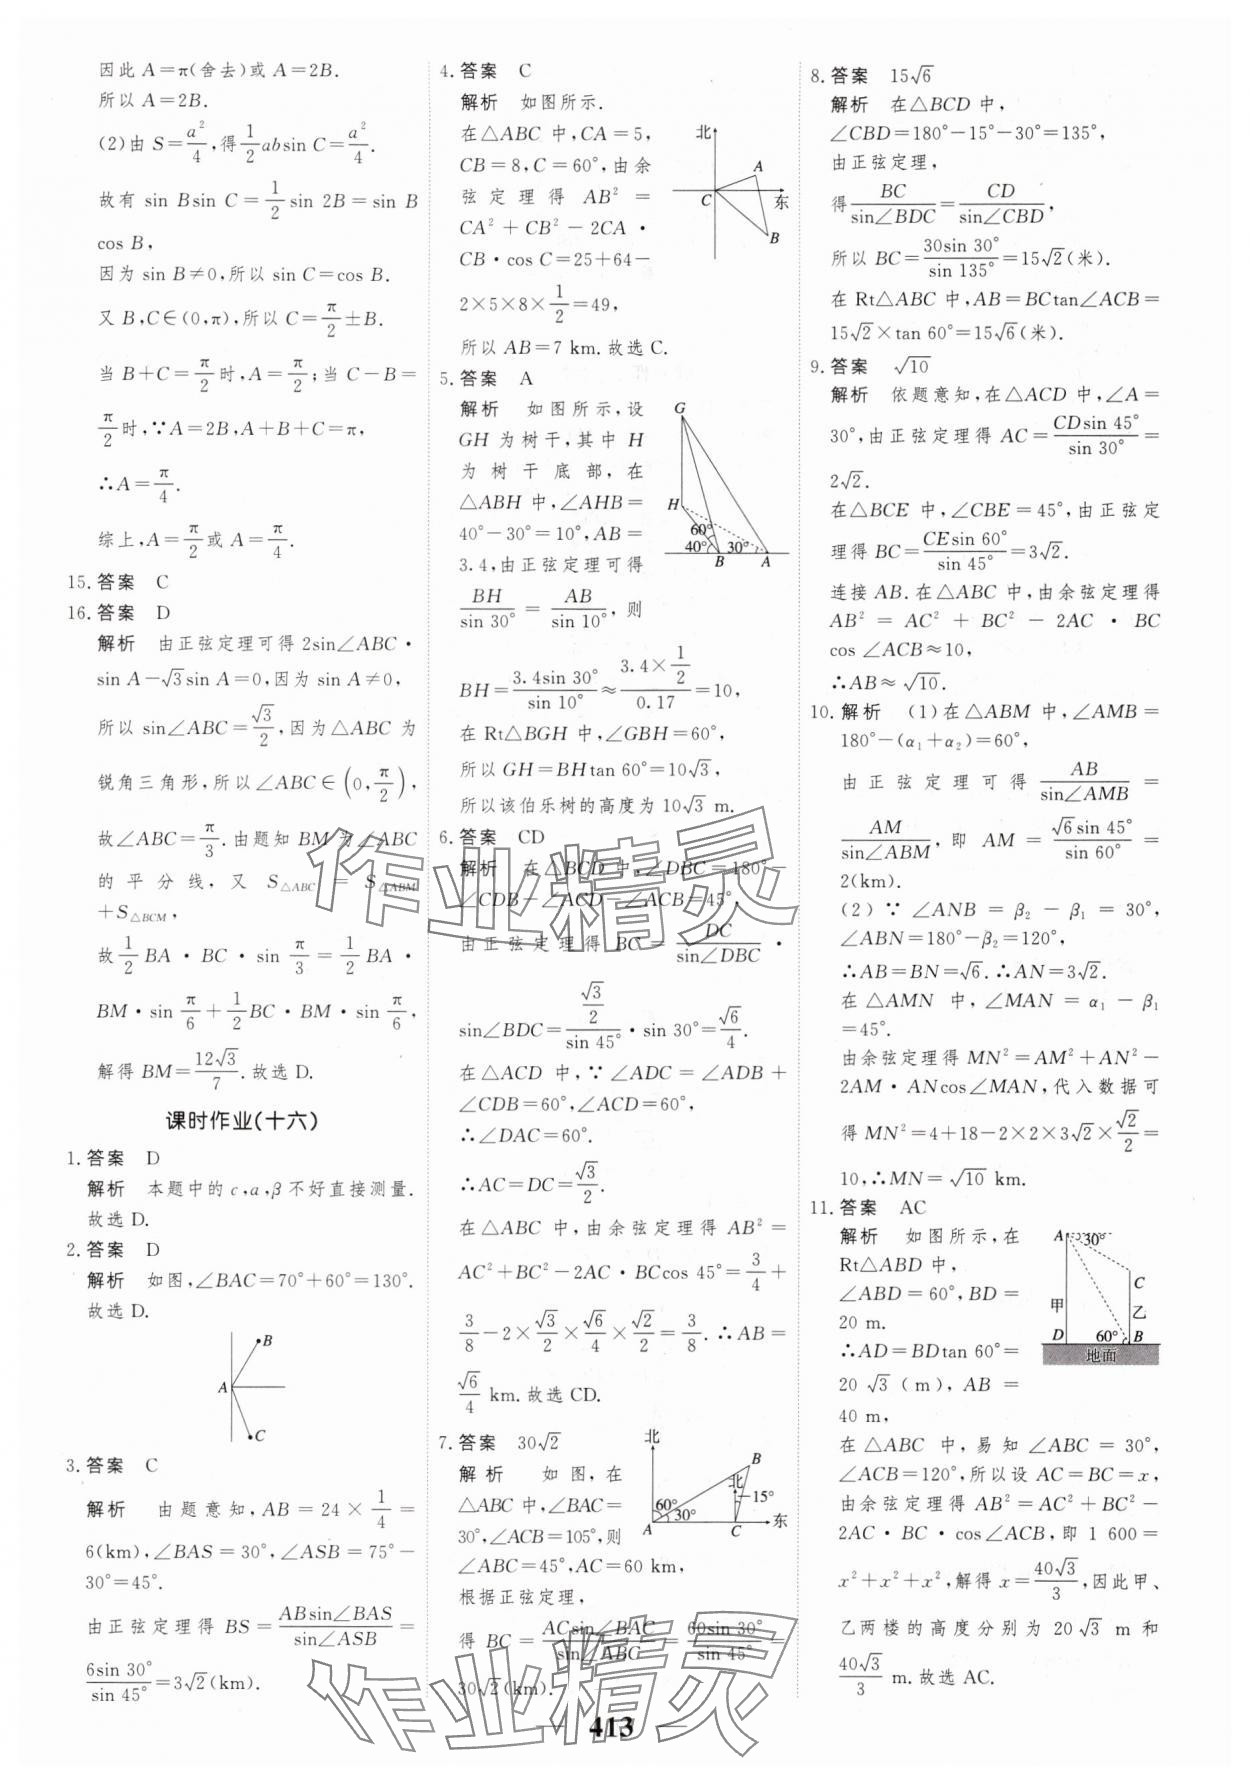 因此 A=π(舍去)或 A=2B.
所以 A=2B.
(2)由 S=a²/4,得1/2absin C=a²/4.
故有 sin Bsin C=1/2sin 2B=sin B
cos B,
因为 sin B≠0,所以 sin C=cos B.
又 B,C∈(0,π),所以 C=π/2±B.
当 B+C=π/2时,A=π/2;当 C-B=
π/2时,∵A=2B,A+B+C=π,
∴A=π/4.
综上,A=π/2或 A=π/4.
15.答案 C
16.答案 D
解析 由正弦定理可得 2sin∠ABC·
sin A-√3sin A=0,因为 sin A≠0,
所以 sin∠ABC=√3/2,因为△ABC 为
锐角三角形,所以∠ABC∈(0,π/2),
故∠ABC=π/3.由题知 BM 为∠ABC
的平分线,又 S△ABC = S△ABM
+S△BCM,
故1/2BA·BC·sin π/3=1/2BA·
BM·sin π/6+1/2BC·BM·sin π/6,
解得 BM=12√3/7.故选 D.
课时作业(十六)
1.答案 D
解析 本题中的 c,α,β 不好直接测量.
故选 D.
2.答案 D
解析 如图,∠BAC=70°+60°=130°.
故选 D.
B
A
C
3.答案 C
解析 由题意知,AB=24×1/4=
6(km),∠BAS=30°,∠ASB=75°-
30°=45°.
由正弦定理得 BS=ABsin∠BAS/sin∠ASB=
6sin 30°/sin 45°=3√2(km).
4.答案 C
解析 如图所示.
在△ABC 中,CA=5,
CB=8,C=60°,由余
弦定理得 AB² =
CA²+CB²-2CA·
CB·cos C=25+64-
2×5×8×1/2=49,
所以 AB=7 km.故选 C.
北
A
C
东
B
5.答案 A
解析 如图所示,设
GH 为树干,其中 H
为树干底部,在
△ABH 中,∠AHB=
40°-30°=10°,AB=
3.4,由正弦定理可得
BH/sin 30° = AB/sin 10°,则
BH=3.4sin 30°/sin 10°≈3.4×1/2/0.17=10,
在 Rt△BGH 中,∠GBH=60°,
所以 GH=BHtan 60°=10√3,
所以该伯乐树的高度为 10√3 m.
G
H
60°
40° 30°
B A
6.答案 CD
解析 在△BCD 中,∠DBC=180°-
∠CDB-∠ACD-∠ACB=45°,
由正弦定理得 BC=DC/sin∠DBC·
sin∠BDC=√3/2/sin 45°·sin 30°=√6/4.
在△ACD 中,∵∠ADC=∠ADB+
∠CDB=60°,∠ACD=60°,
∴∠DAC=60°.
∴AC=DC=√3/2.
在△ABC 中,由余弦定理得 AB²=
AC²+BC²-2AC·BCcos 45°=3/4+
3/8-2×√3/2×√6/4×√2/2=3/8.∴AB=
√6/4 km.故选 CD.
7.答案 30√2
解析 如图,在
△ABC 中,∠BAC=
30°,∠ACB=105°,则
∠ABC=45°,AC=60 km,
根据正弦定理,
得 BC=ACsin∠BAC/sin∠ABC=60sin 30°/sin 45°=
30√2(km).
北
B
北
60° 15°
30°
A C 东
8.答案 15√6
解析 在△BCD 中,
∠CBD=180°-15°-30°=135°,
由正弦定理,
得BC/sin∠BDC=CD/sin∠CBD,
所以 BC=30sin 30°/sin 135°=15√2(米).
在 Rt△ABC 中,AB=BCtan∠ACB=
15√2×tan 60°=15√6(米).
9.答案 √10
解析 依题意知,在△ACD 中,∠A=
30°,由正弦定理得 AC=CDsin 45°/sin 30°=
2√2.
在△BCE 中,∠CBE=45°,由正弦定
理得 BC=CEsin 60°/sin 45°=3√2.
连接 AB.在△ABC 中,由余弦定理得
AB² = AC² + BC² - 2AC·BC
cos ∠ACB≈10,
∴AB≈√10.
10.解析 (1)在△ABM 中,∠AMB=
180°-(α₁+α₂)=60°,
由正弦定理可得 AB/sin∠AMB =
AM/sin∠ABM,即 AM = √6sin 45°/sin 60° =
2(km).
(2)∵∠ANB=β₂-β₁=30°,
∠ABN=180°-β₂=120°,
∴AB=BN=√6.∴AN=3√2.
在△AMN 中,∠MAN=α₁-β₁
=45°.
由余弦定理得 MN²=AM²+AN²-
2AM·ANcos∠MAN,代入数据可
得 MN²=4+18-2×2×3√2×√2/2=
10,∴MN=√10 km.
11.答案 AC
解析 如图所示,在
Rt△ABD 中,
∠ABD=60°,BD=
20 m.
∴AD=BDtan 60°=
20√3(m),AB=
40 m,
A 30°
C
甲 乙
D 60° B
地面
在△ABC 中,易知∠ABC=30°,
∠ACB=120°,所以设 AC=BC=x,
由余弦定理得 AB²=AC²+BC²-
2AC·BC·cos∠ACB,即 1 600=
x²+x²+x²,解得 x=40√3/3,因此甲、
乙两楼的高度分别为 20√3 m 和
40√3/3 m.故选 AC.
作业精灵
作业精灵
413